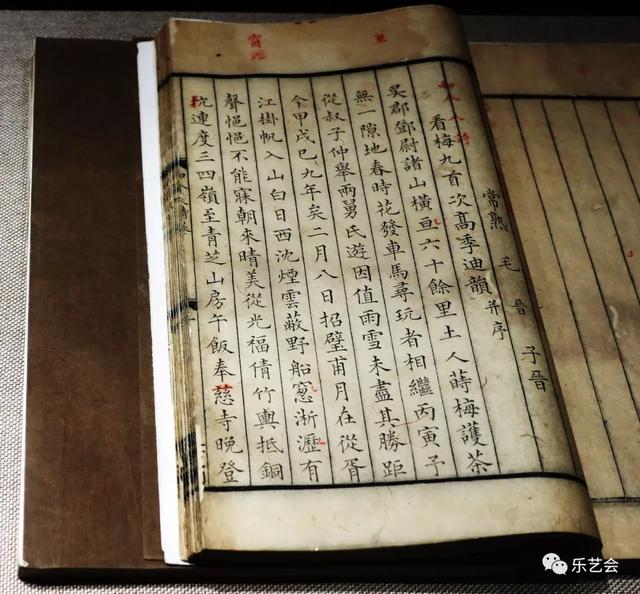 常熟 毛晉 子晉
看梅九首次高季迪韻 并序
吳郡鄧尉諸山橫亘六十餘里土人蒔梅護茶
無一隙地春時花發車馬尋玩者相繼丙寅予
從叔子仲舉兩舅氏遊因值雨雪未盡其勝距
今甲戌巳九年矣二月八日招壁甫月在從胥
江掛帆入山白日西沈煙雲蔽野船窻淅瀝有
聲悒悒不能寐朝來晴美從光福倩竹輿抵銅
坑連度三四嶺至青芝山房午飯奉慈寺晚登
乐艺会